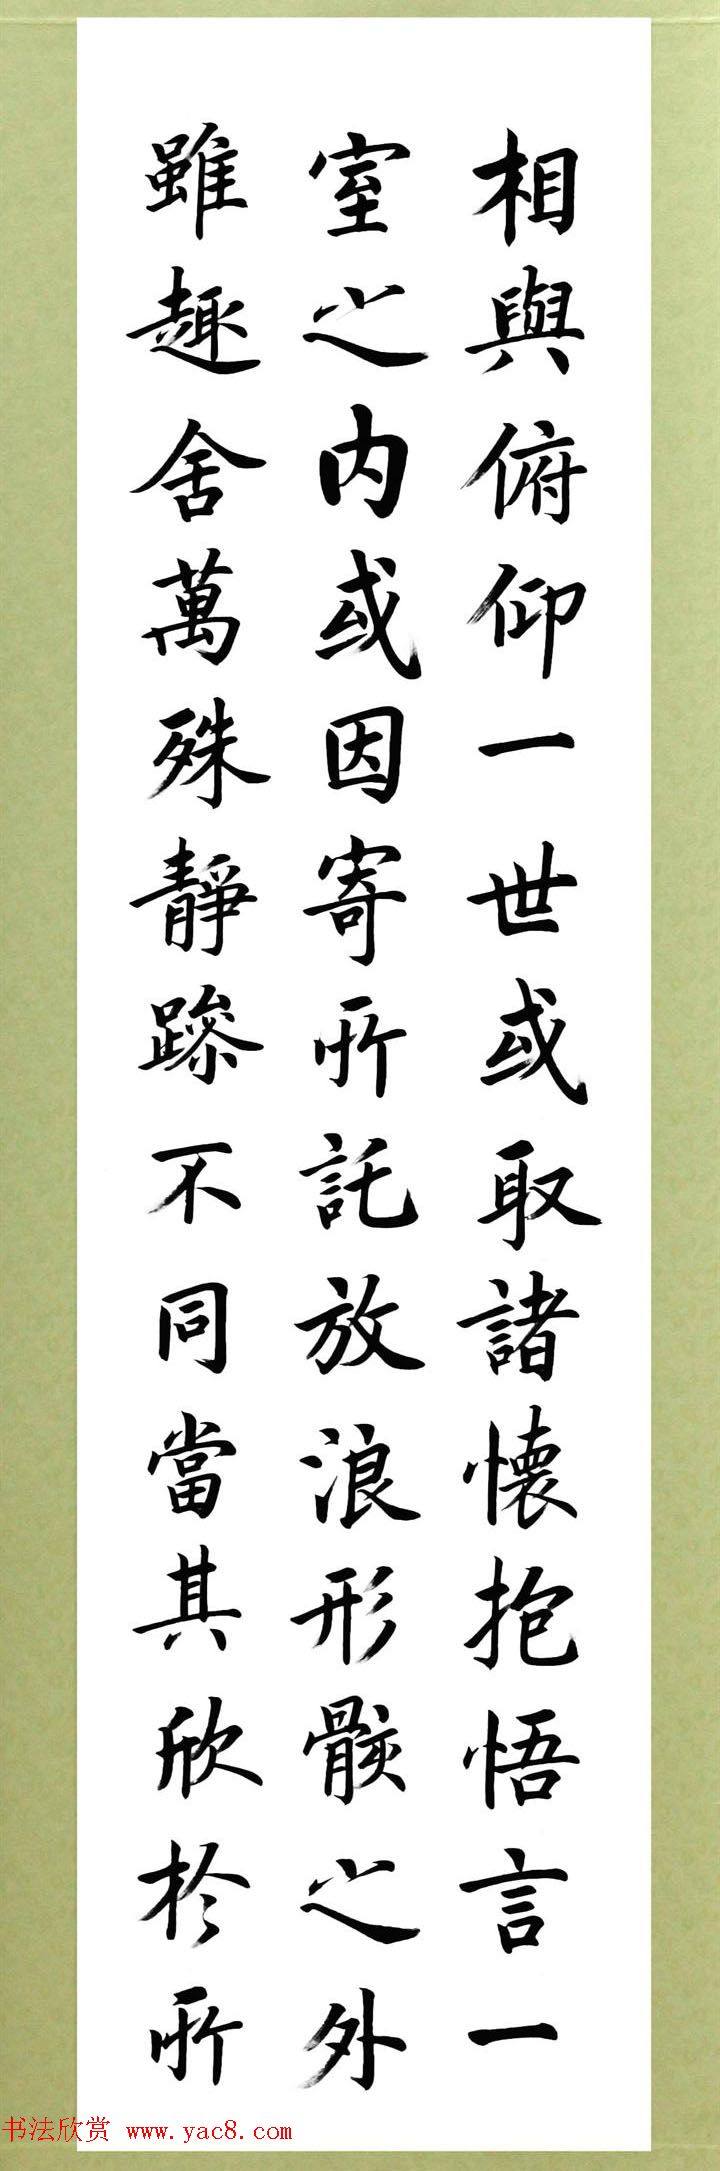 相與俯仰一世或取諸懷抱悟言一
室之内或因寄所託放浪形骸之外
雖趣舍萬殊靜躁不同當其欣於所
书法欣赏 www.yac8.com